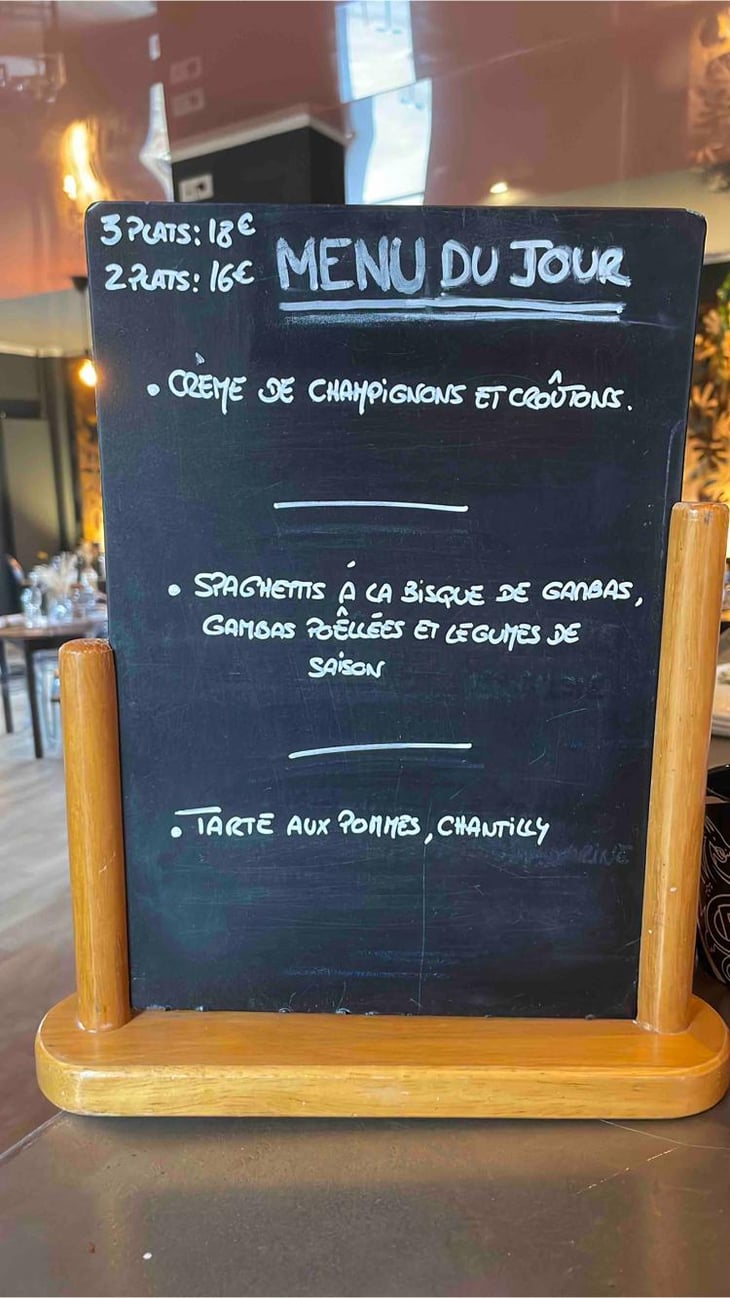 3 PLATS: 18€
2 PLATS: 16€
MENU DU JOUR
• CRÈME DE CHAMPIGNONS ET CROÛTONS.
• SPAGHETTIS À LA BISQUE DE GAMBAS,
GAMBAS POÊLLÉES ET LÉGUMES DE
SAISON
• TARTE AUX POMMES, CHANTILLY